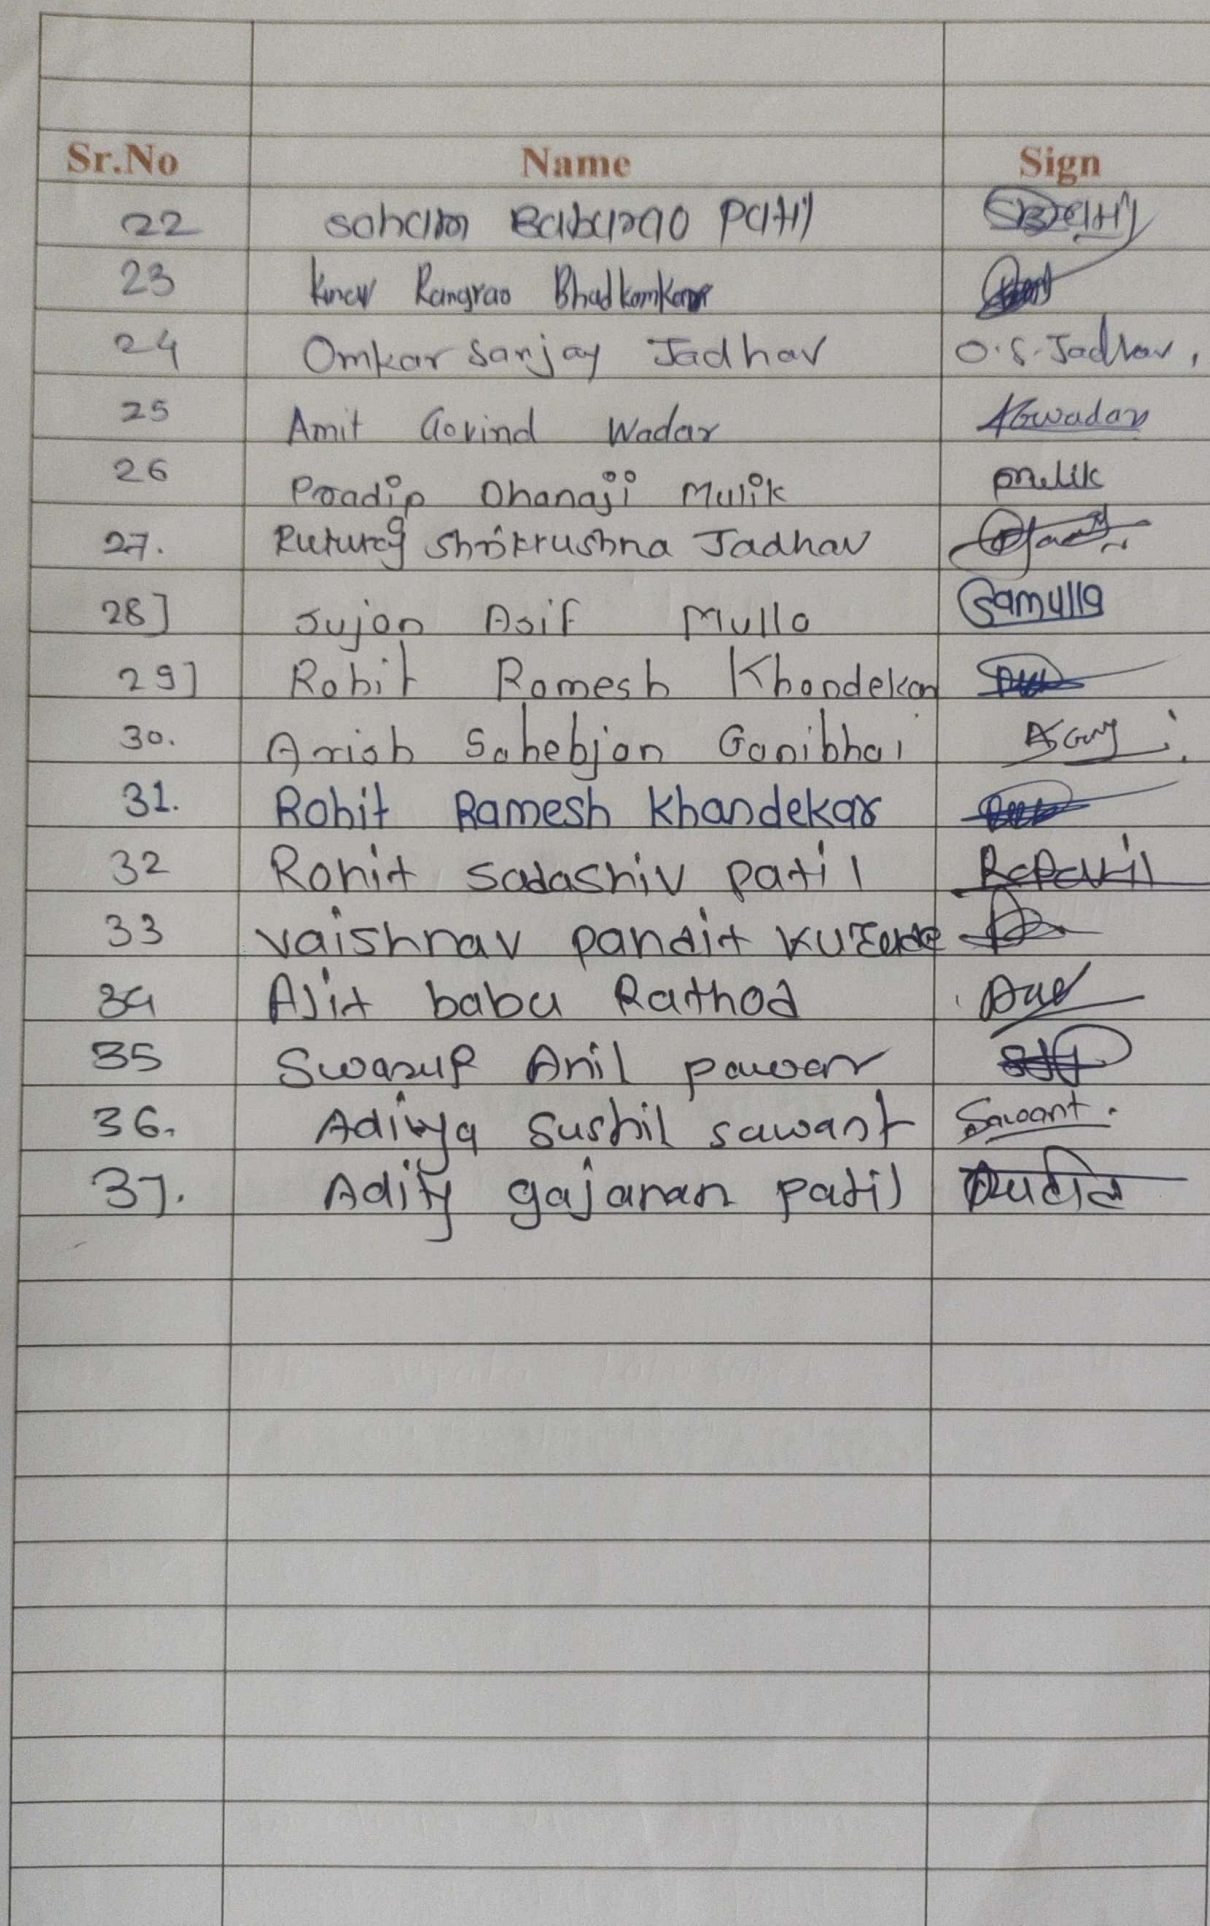 Sr.No Name Sign
22 Soham Babarao Patil
23 Rangrao Bhadkamkar
24 Omkar Sanjay Jadhav O.S.Jadhav,
25 Amit Govind Wadar AGwadar
26 Pradip Dhanaji Mulik pmulik
27. Ruturaj Shrikrushna Jadhav
28] Sujan Asif Mulla Samulla
29] Rohit Ramesh Khandekar
30. Arish Sahebjan Ganibhai
31. Rohit Ramesh Khandekar
32 Rohit Sadashiv patil RSPatil
33 Vaishnav pandit
34 Ajit babu Rathod
35 Swarup Anil pawar
36. Aditya Sushil sawant Sawant.
37. Adity gajanan patil